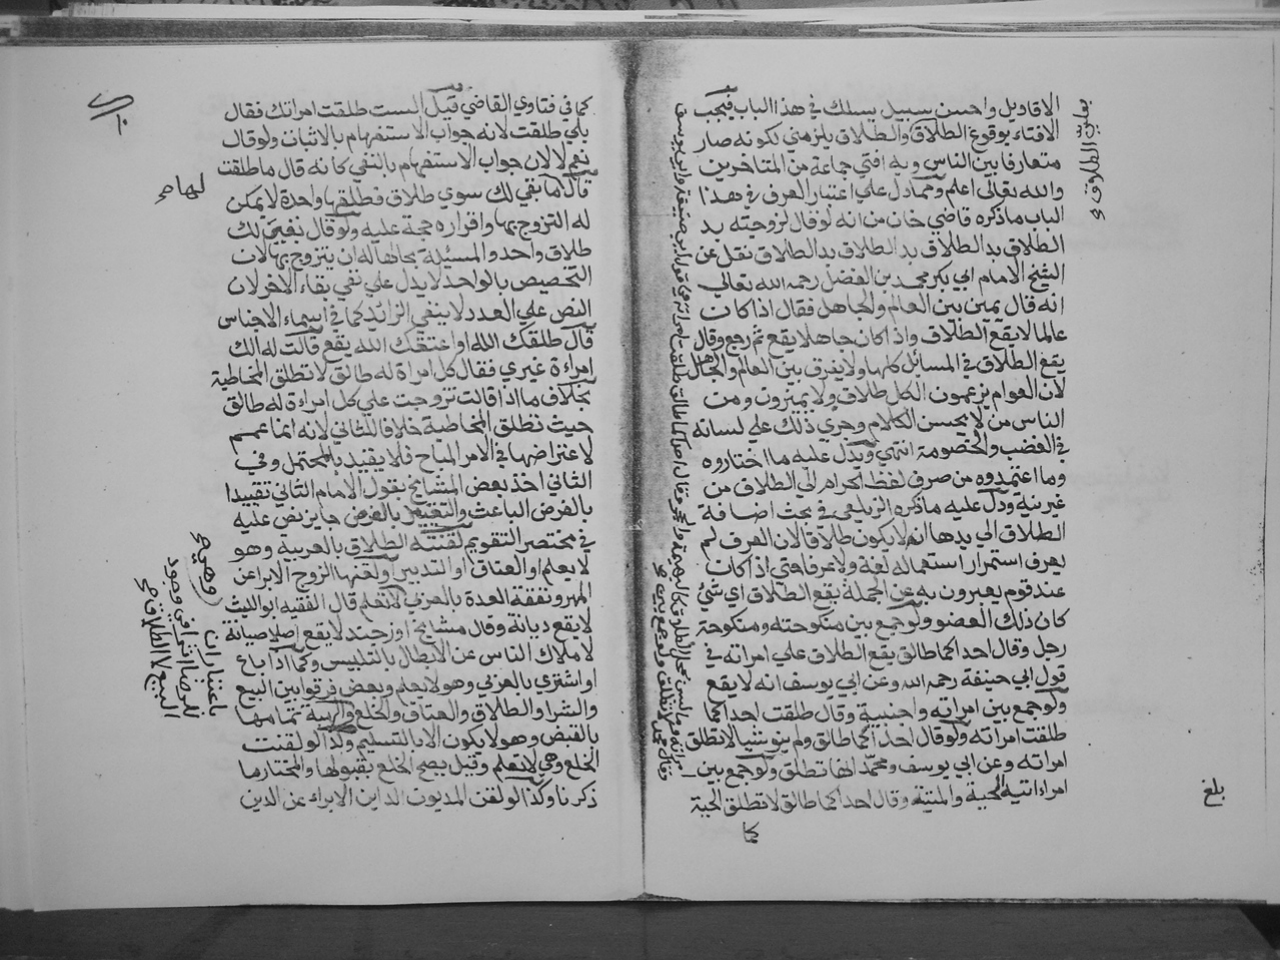 الاقاويل واحسن سبيل يسلك في هذا الباب فيجب
الافتاء بوقوع الطلاق والطلاق يلزمني لكونه صار
متعارفا بين الناس وبه افتي جماعة من المتاخرين
والله تعالى اعلم ومما دل علي اعتبار العرف في هذا
الباب ما ذكره قاضي خان من انه لو قال لزوجته بد
الطلاق بد الطلاق بد الطلاق بد الطلاق نقل عن
الشيخ الامام ابي بكر محمد بن الفضل رحمه الله تعالي
انه قال يمين بين العالم والجاهل فقال اذا كان
عالما لا يقع الطلاق واذا كان جاهلا يقع ثم رجع وقال
يقع الطلاق في المسائل كلها ولا يفرق بين العالم والجاهل
لان العوام يزعمون الكل طلاق ولا يميزون ومن
الناس من لا يحسن الكلام وجري ذلك علي لسانه
في الغضب والخصومة انتهي ويدل عليه ما اختاروه
وما اعتمدوه من صرف لفظ الحرام الي الطلاق من
غير نية ودل عليه ما ذكره الزيلعي في بحث اضافة
الطلاق الي يدها انه لا يكون طلاقا لان العرف لم
يعرف استمرار استعماله لغة ولا عرفا حتي اذا كان
عند قوم يعبرون به عن الجملة يقع الطلاق اي شيء
كان ذلك العضو ولو جمع بين منكوحته ومنكوحة
رجل وقال احداكما طالق يقع الطلاق علي امراته في
قول ابي حنيفة رحمه الله وعن ابي يوسف انه لا يقع
ولو جمع بين امراته واجنبية وقال طلقت احداكما
طلقت امراته ولو قال احداكما طالق ولم ينو شيا لا تطلق
امراته وعن ابي يوسف ومحمد انها تطلق ولو جمع بين
امراءتيه الحية والميتة وقال احداكما طالق لا تطلق الحية
كما
بلغ
كما في فتاوي القاضي قيل الست طلقت امراتك فقال
بلي طلقت لانه جواب الاستفهام بالاثبات ولو قال
نعم لا لان جواب الاستفهام بالنفي كانه قال ما طلقت
قال ما بقي لك سوي طلاق فطلقها واحدة لا يمكن
له التزوج بها واقراره حجة عليه ولو قال بقي لك
طلاق واحد والمسئلة بحالها له ان يتزوج بها لان
التخصيص بالواحد لا يدل علي نفي بقاء الاخر لان
النص علي العدد لا ينفي الزائد كما في اسماء الاجناس
قال طلقك الله او اعتقك الله يقع قالت له الك
امراءة غيري فقال كل امراة له طالق لا تطلق المخاطبة
بخلاف ما اذا قالت تزوجت علي كل امراءة له طالق
حيث تطلق المخاطبة خلافا للثاني لانه انما عمم
لاعتراضها في الامر المباح فلا يقيد بالمحتمل وفي
الثاني اخذ بعض المشايخ بقول الامام الثاني تقييدا
بالغرض الباعث والتقييد بالغرض جايز نص عليه
في مختصر التقويم لقنته الطلاق بالعربية وهو
لا يعلم او العتاق او التدبير او لقنها الزوج الابرا عن
المهر ونفقة العدة بالعربي لا تعلم قال الفقيه ابو الليث
لا يقع ديانة وقال مشايخ اوزجند لا يقع اصلا صيانة
لاملاك الناس عن الابطال بالتلبيس وكما اذا باع
او اشتري بالعربي وهو لا يعلم وبعض فرقوا بين البيع
والشرا والطلاق والعتاق والخلع والهبة تمامها
بالقبض وهو لا يكون الا بالتسليم وكذا لو لقنت
الخلع وهي لا تعلم وقيل يصح الخلع بقبولها والمختار ما
ذكرنا وكذا لو لقن المديون الداين الابراء عن الدين
لها
باعتبار ان
للرضا اثرا في وجود
البيع لا الطلاق